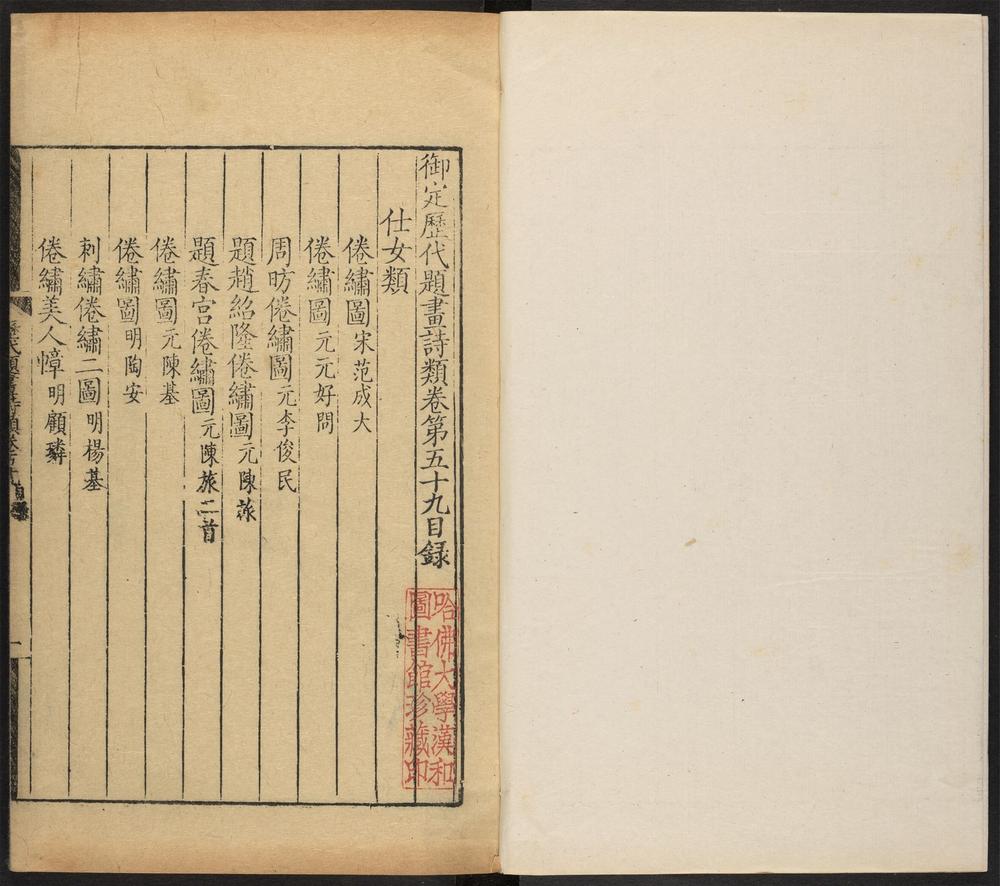 御定歷代題畫詩類卷第五十九目錄
仕女類
倦繡圖 宋范成大
倦繡圖 元元好問
周昉倦繡圖 元李俊民
題趙紹隆倦繡圖 元陳旅
題春宮倦繡圖 元陳旅二首
倦繡圖 元陳基
倦繡圖 明陶安
刺繡倦繡二圖 明楊基
倦繡美人幛 明顧璘
哈佛大學漢和
圖書館珍藏印
一